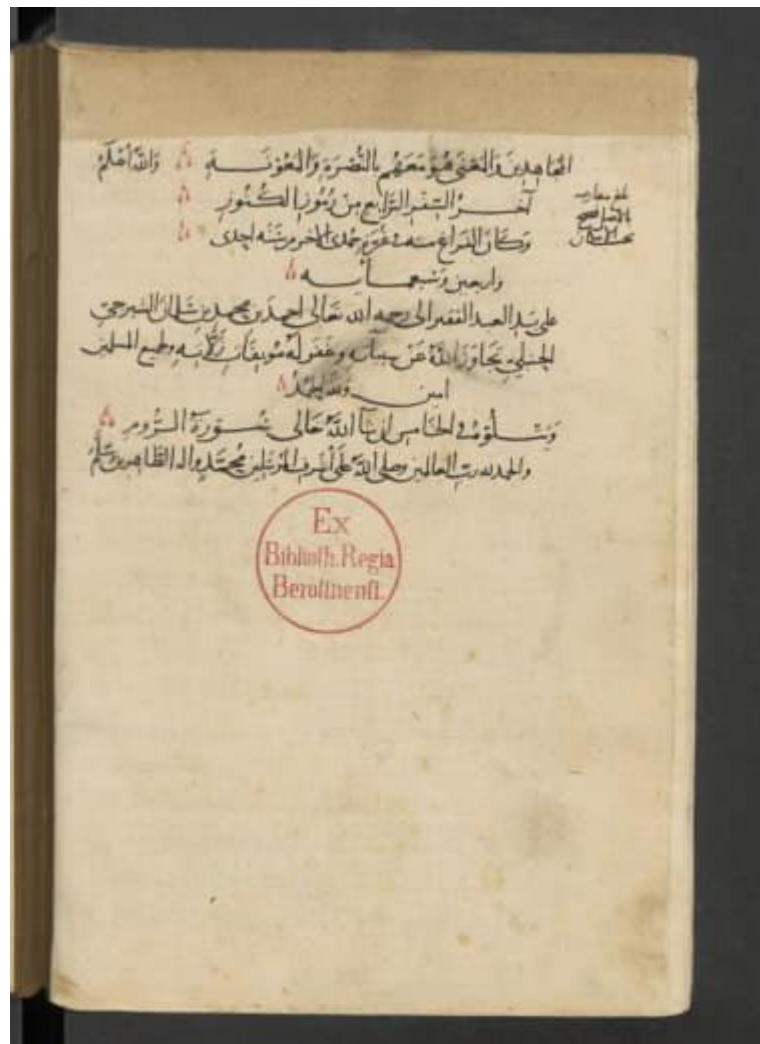 المجاهدين والمعنى هو معهم بالنصرة والمعونة والله أعلم
آخر السفر الرابع من رموز الكنوز
بلغ معارضة
وكان الفراغ منه في غرة جمدى الاخر من سنه احدى
واربعين وسبعمائه
على يد العبد الفقير الى رحمه الله تعالى احمد بن محمد بن سلمان الشيرجي
الحنبلي تجاوز الله عن سيآته وغفر له ولجميع المسلمين
امين ولله الحمد
ويتلوه في الخامس ان شآ الله تعالى سورة الروم
والحمد لله رب العالمين وصلى الله على أشرف المرسلين محمد واله الطاهرين وسلم
Ex
Biblioth. Regia
Berolinensi.